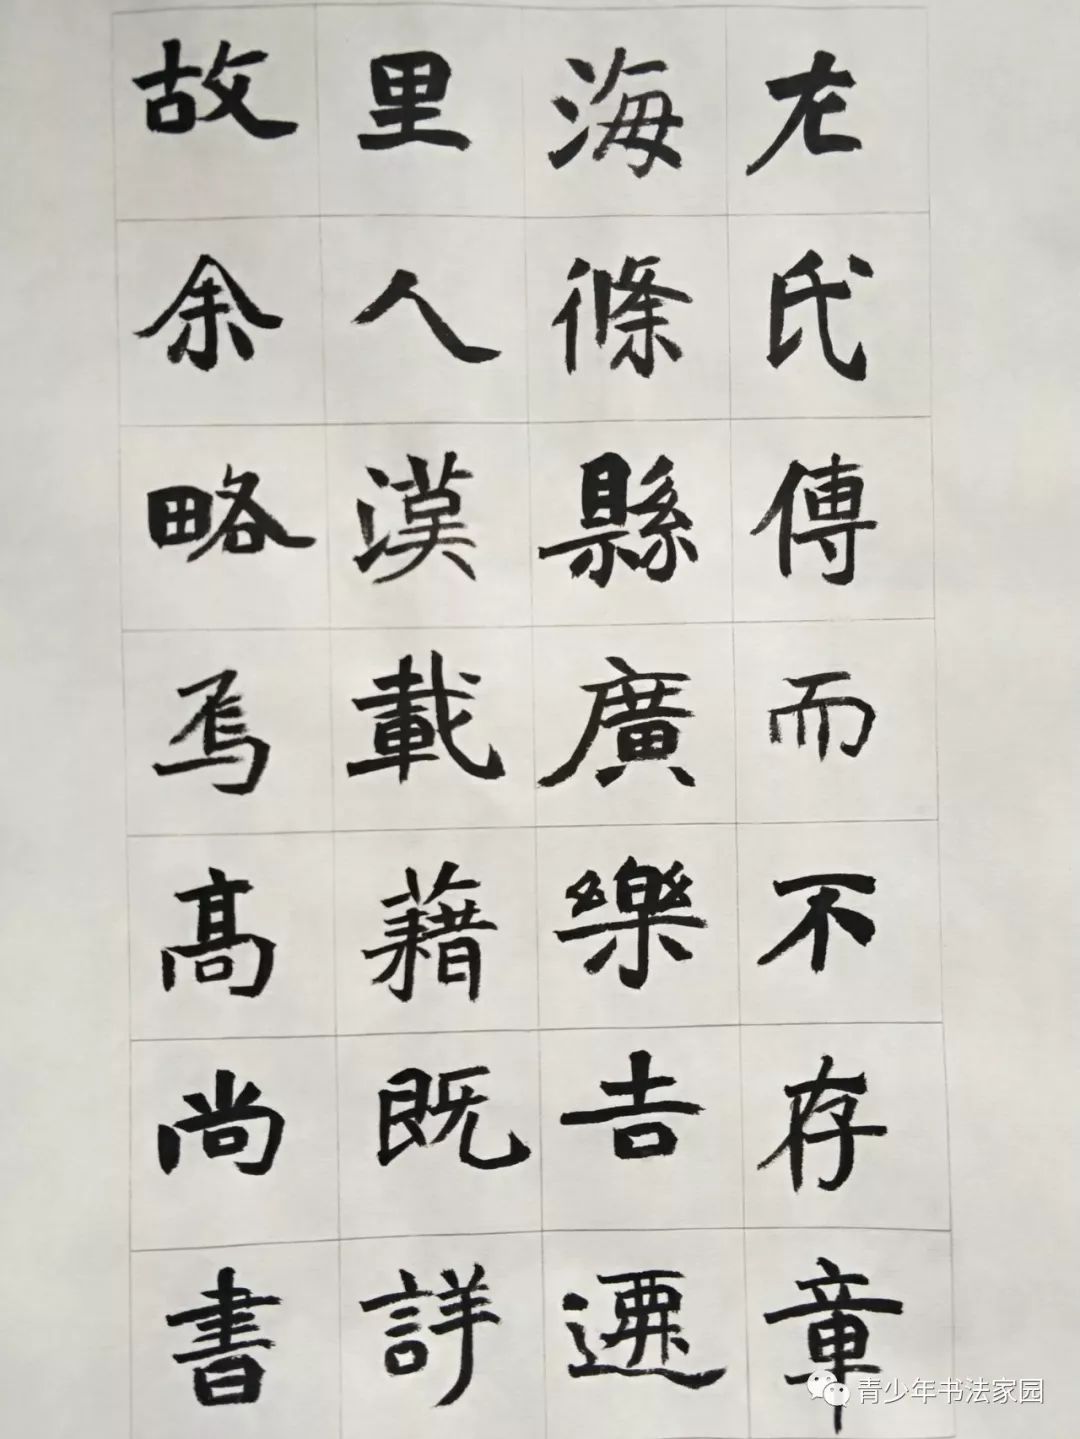 左氏傳而不存章
海條縣廣樂吉遷
里人漢載藉既詳
故余略焉高尚書
青少年书法家园